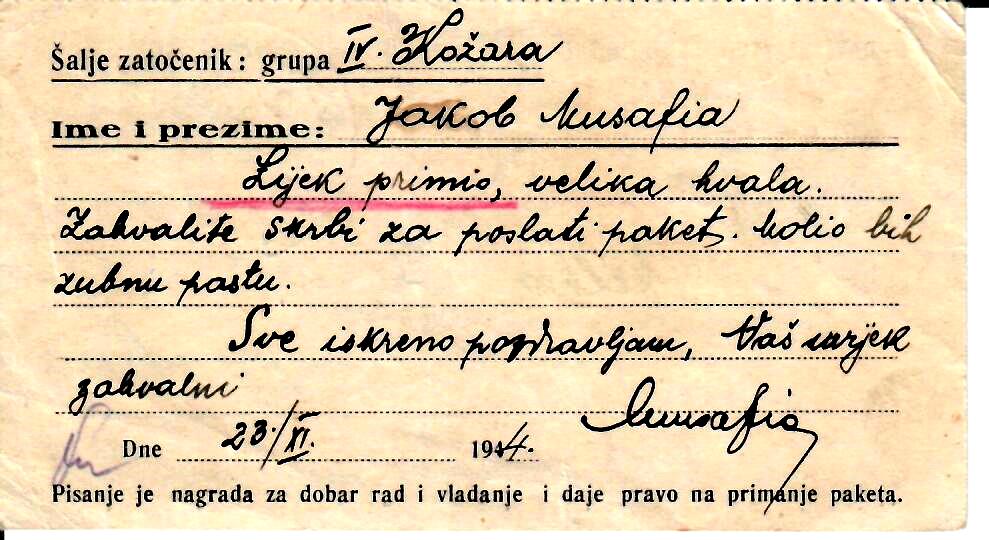 Šalje zatočenik: grupa IV. Kožara
Ime i prezime: Jakob Musafia
Lijek primio, velika hvala.
Zahvalite skrbi za poslati paket. Molio bih
zubnu pastu.
Sve iskreno pozdravljam, Vaš uvijek
zahvalni
Musafia
Dne 23./XI. 1944.
Pisanje je nagrada za dobar rad i vladanje i daje pravo na primanje paketa.